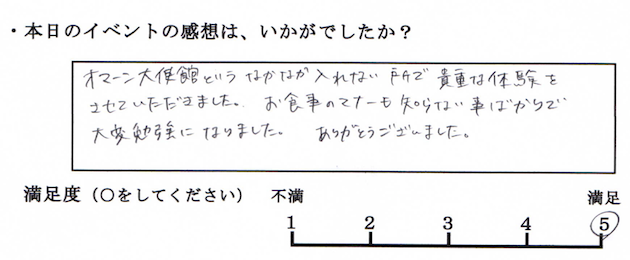 ・本日のイベントの感想は、いかがでしたか？
オマーン大使館というなかなか入れない所で貴重な体験を
させていただきました。お食事のマナーも知らない事ばかりで
大変勉強になりました。ありがとうございました。
満足度（○をしてください） 不満 満足
1 2 3 4 5